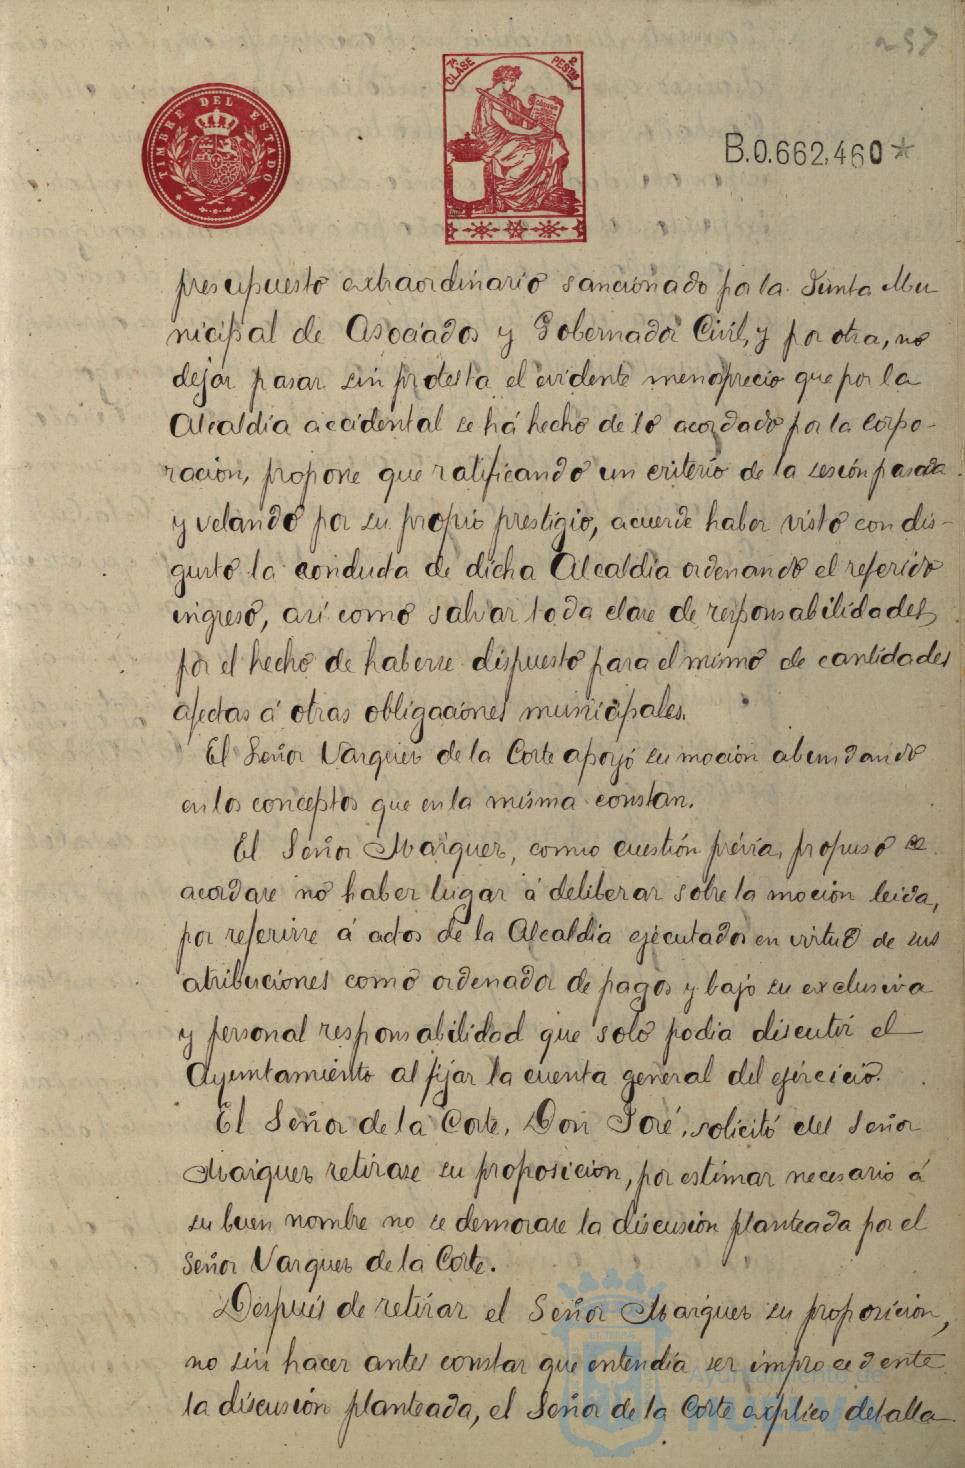 257
TIMBRE DEL ESTADO
7ª CLASE
2 PESTAS
B.0.662,460*
presupuesto extraordinario sancionado por la Junta Mu
nicipal de Asociados y Gobernador Civil, y por otra, no
dejar pasar sin protesta el evidente menosprecio que por la
Alcaldía accidental se há hecho de lo acordado por la Corpo-
racion, propone que ratificando un criterio de la sesión pasada
y velando por su propio prestigio, acuerde haber visto con dis-
gusto la conducta de dicha Alcaldía ordenando el referido
ingreso, así como salvar toda clase de responsabilidades,
por el hecho de haberse dispuesto para el mismo de cantidades
afectas á otras obligaciones municipales.
El Señor Vazquez de la Corte apoyó su moción abundando
en los conceptos que en la misma constan.
El Señor Márquez, como cuestión prévia, propuso se
acordase no haber lugar á deliberar sobre la moción leida,
por referirse á actos de la Alcaldía ejecutados en virtud de sus
atribuciones como ordenador de pagos y bajo su exclusiva
y personal responsabilidad que solo podia discutir el
Ayuntamiento al fijar la cuenta general del ejercicio.
El Señor de la Corte, Don José, solicitó del Señor
Márquez retirase su proposicion, por estimar necesario á
su buen nombre no se demorase la discusión planteada por el
Señor Vazquez de la Corte.
Después de retirar el Señor Márquez su proposición,
no sin hacer antes constar que entendía ser improcedente
la discusión planteada, el Señor de la Corte explicó detalla
Ayuntamiento de
HUELVA